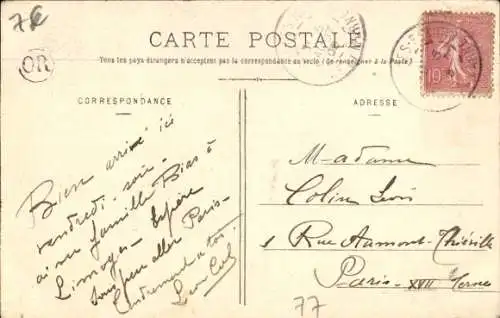 7€
OR
CARTE POSTALE
Tous les pays étrangers n'acceptent pas la correspondance au recto (Se renseigner à la Poste)
CORRESPONDANCE
ADRESSE
10
Bien arrivé ici
vendredi soir
avec famille Bias à
Limoges. Espère
sous peu aller Paris-
Tendrement à toi
Léon
Madame
Colin Léon
1 Rue Aumont-Thiéville
Paris- XVII
77